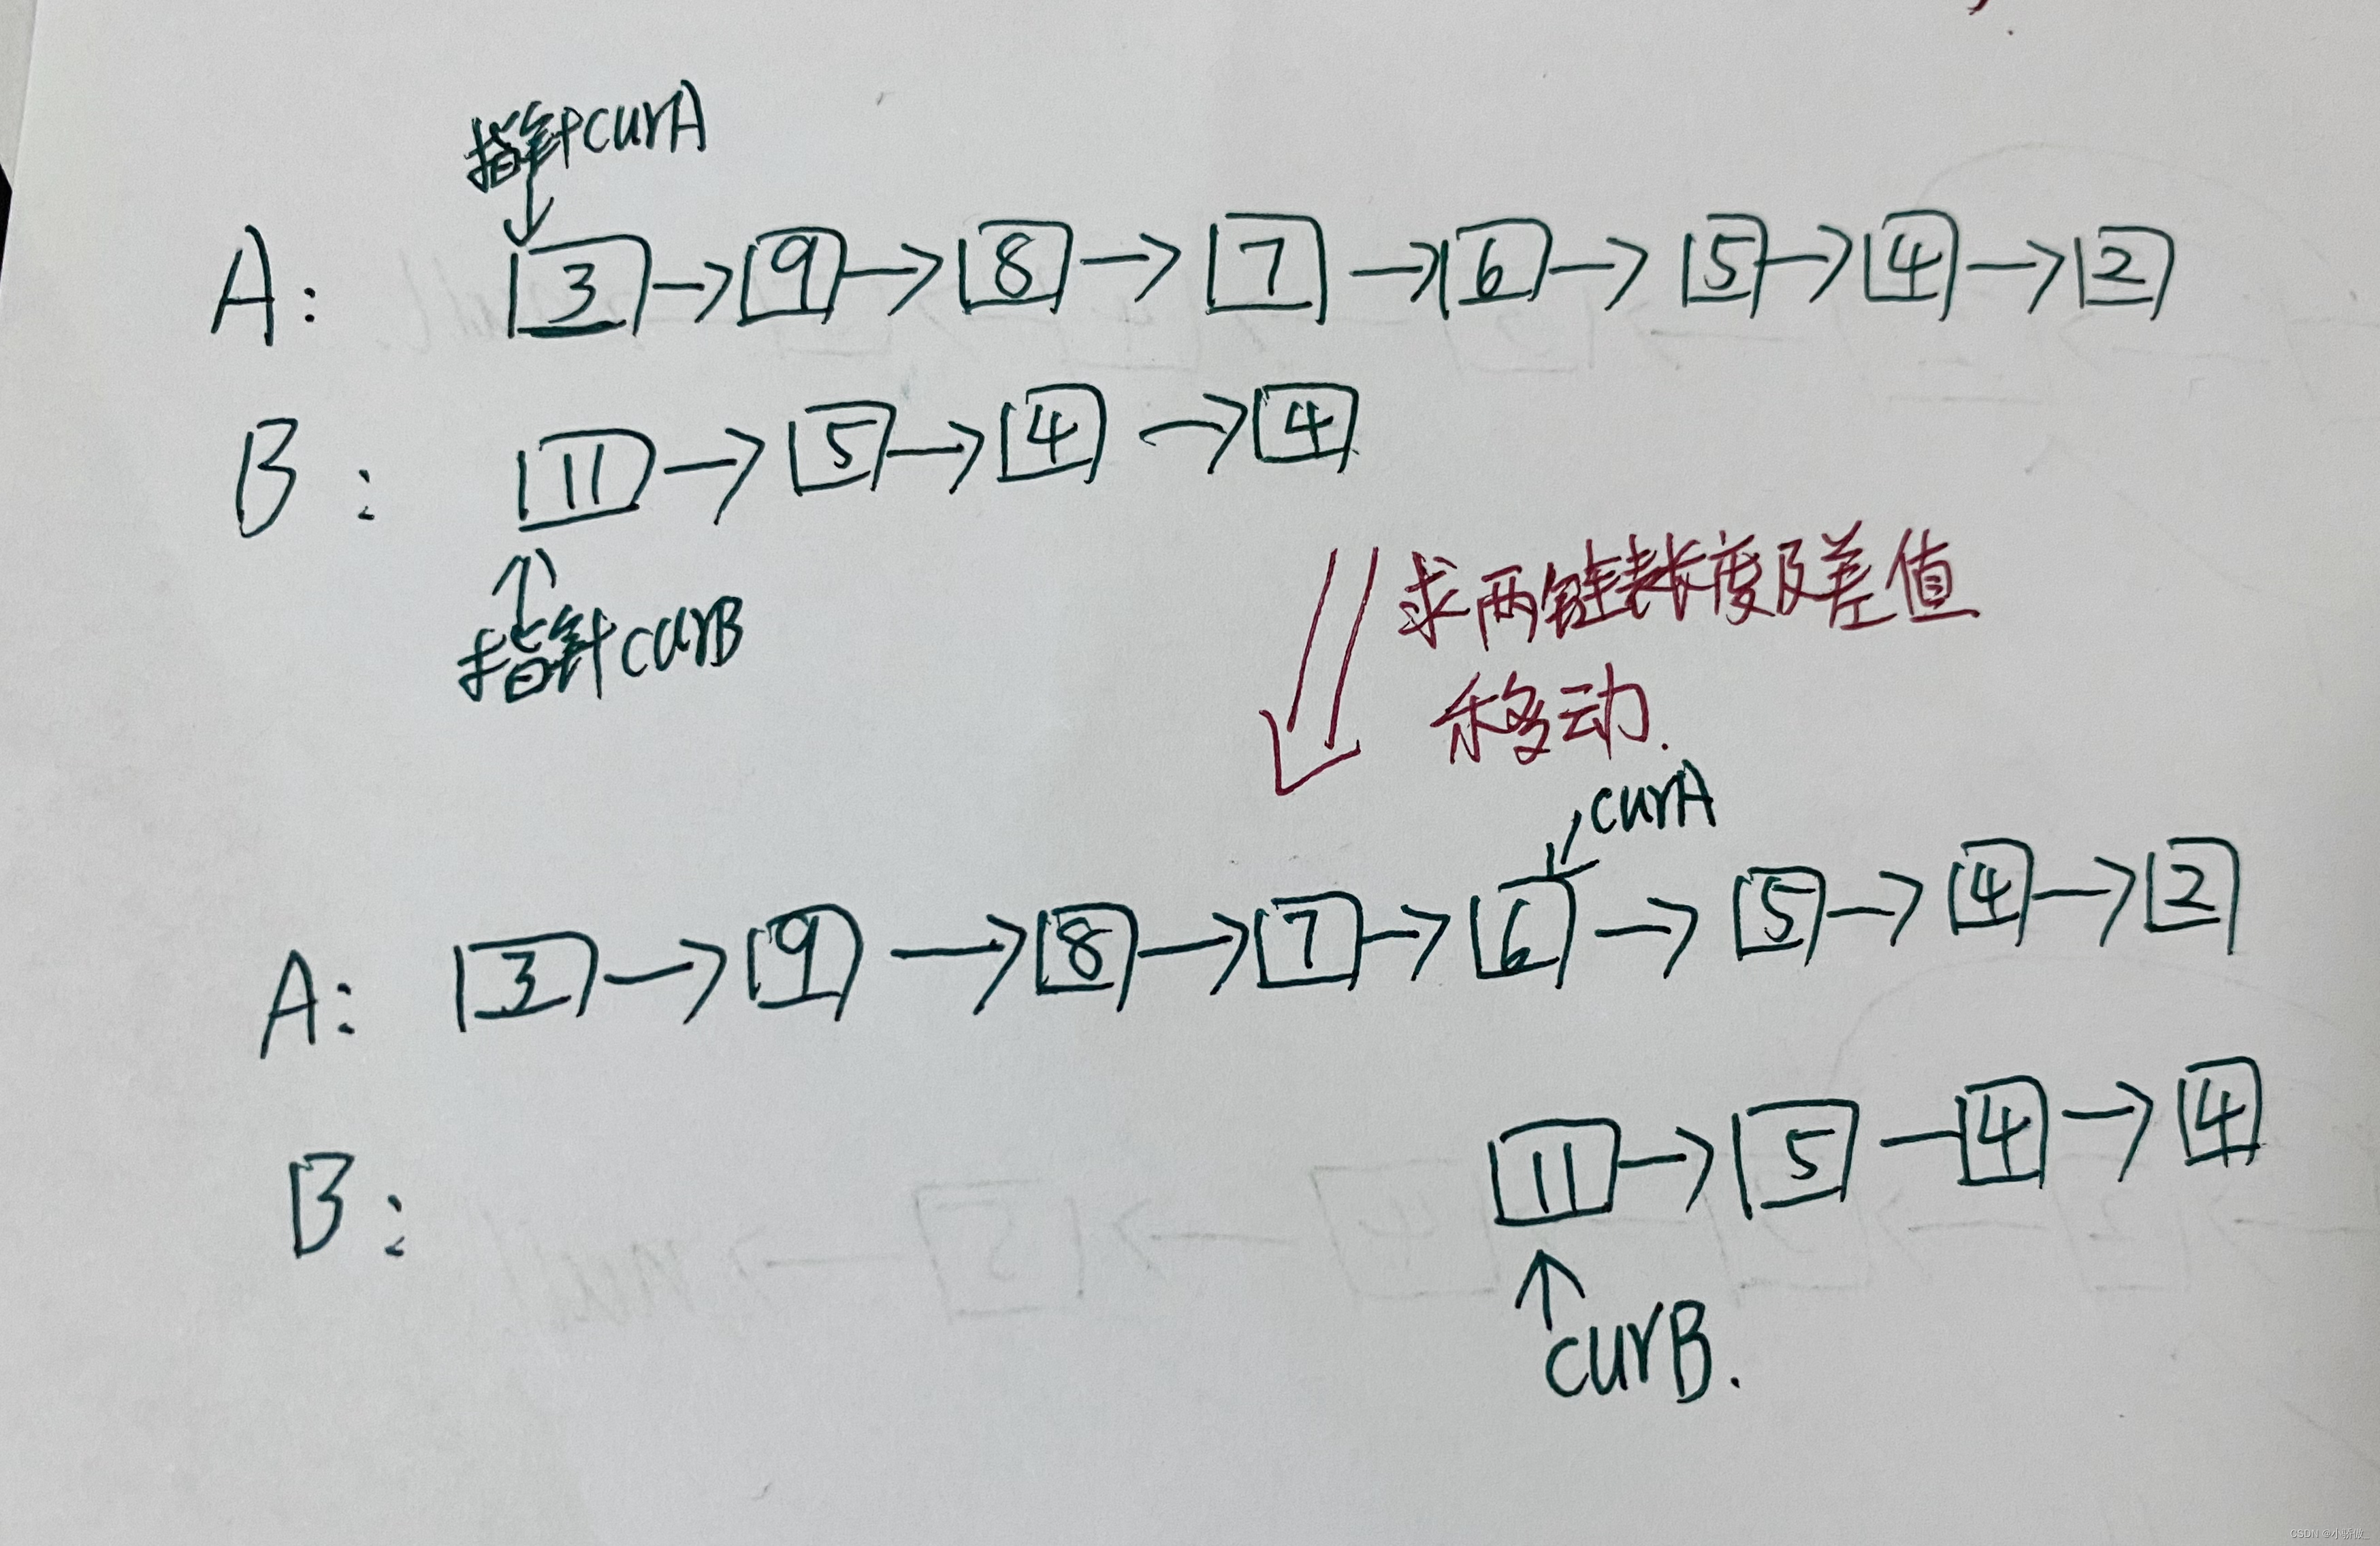 指针curA
A: 3 → 9 → 8 → 7 → 6 → 5 → 4 → 2
B: 11 → 5 → 4 → 4
指针curB
求两链表长度及差值
移动.
curA
A: 3 → 9 → 8 → 7 → 6 → 5 → 4 → 2
B: 11 → 5 — 4 → 4
curB.
CSDN @小骄傲_